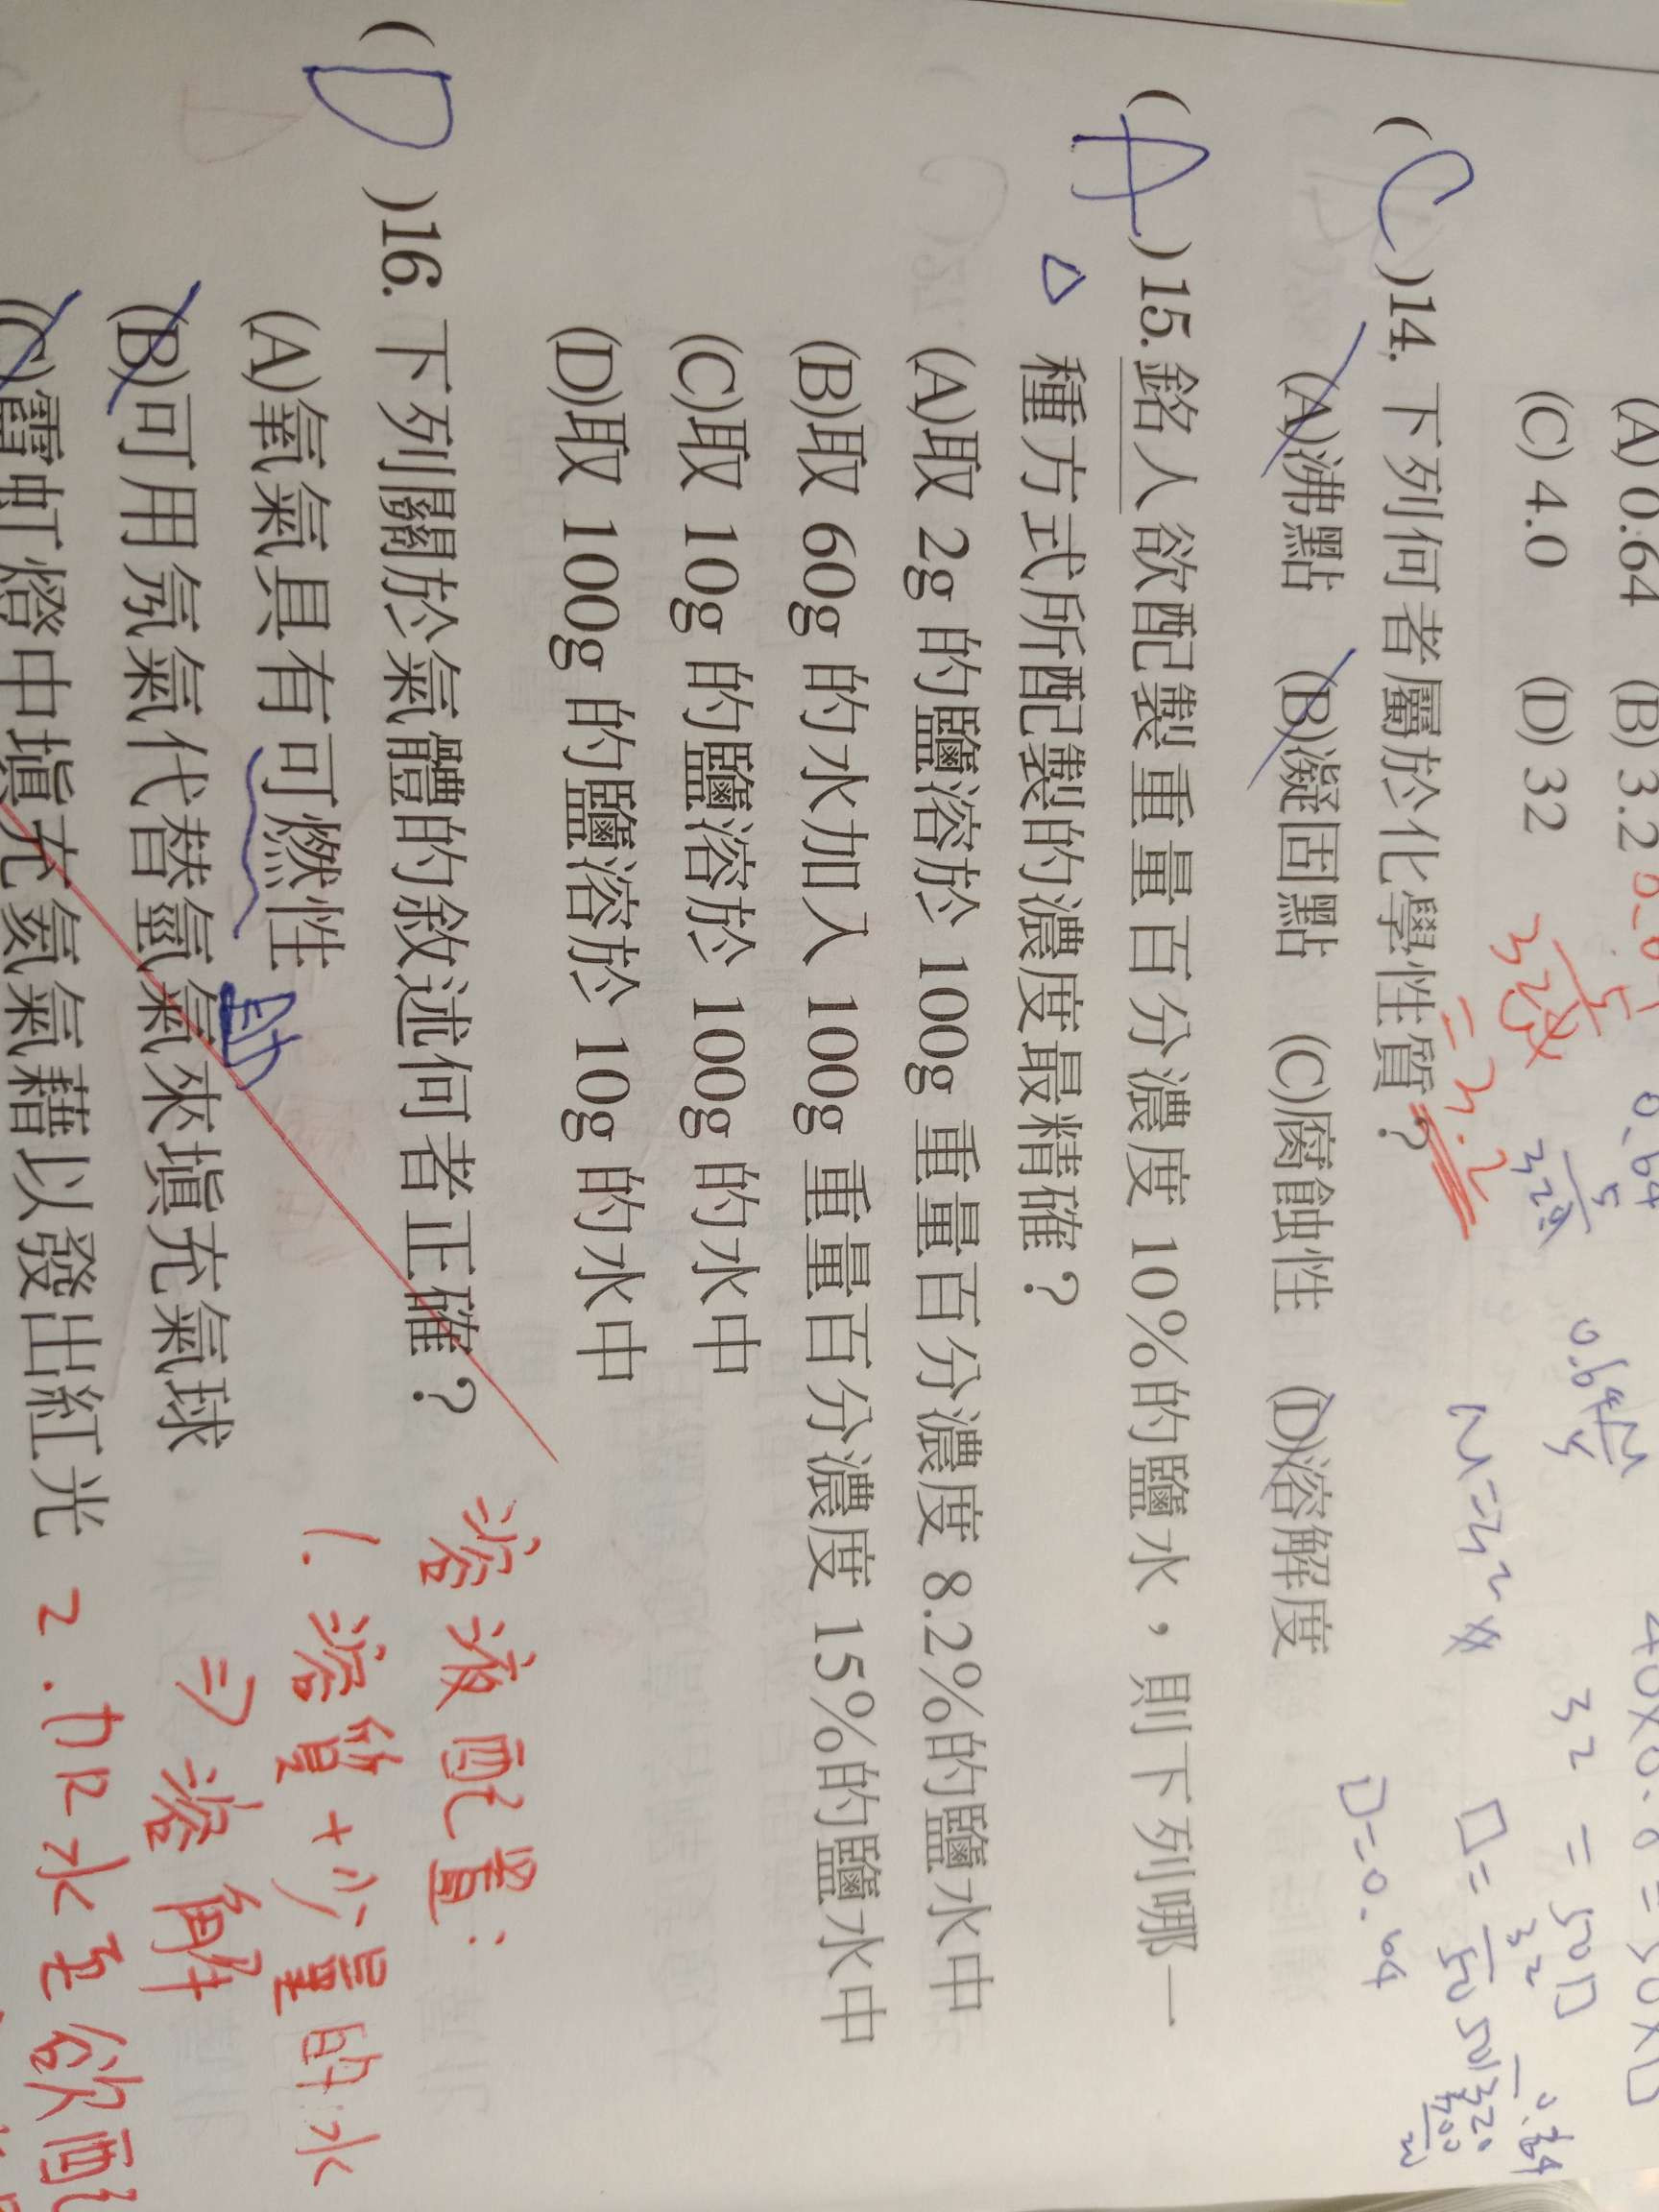 (A) 0.64 (B) 3.2
(C) 4.0 (D) 32
(C)14. 下列何者屬於化學性質？
(A)沸點 (B)凝固點 (C)腐蝕性 (D)溶解度
(A)15. 銘人欲配製重量百分濃度 10%的鹽水，則下列哪一
△ 種方式所配製的濃度最精確？
(A)取 2g 的鹽溶於 100g 重量百分濃度 8.2%的鹽水中
(B)取 60g 的水加入 100g 重量百分濃度 15%的鹽水中
(C)取 10g 的鹽溶於 100g 的水中
(D)取 100g 的鹽溶於 10g 的水中
(D)16. 下列關於氣體的敘述何者正確？
(A)氧氣具有可燃性
助
(B)可用氖氣代替氫氣來填充氣球
(C)霓虹燈中填充氦氣藉以發出紅光
0.64
=3.2
0.64
N=32
32 = 50□
□=
32
50
□=0.64
溶液配置：
1. 溶質+少量的水
⇒溶解
2. 加水至欲配